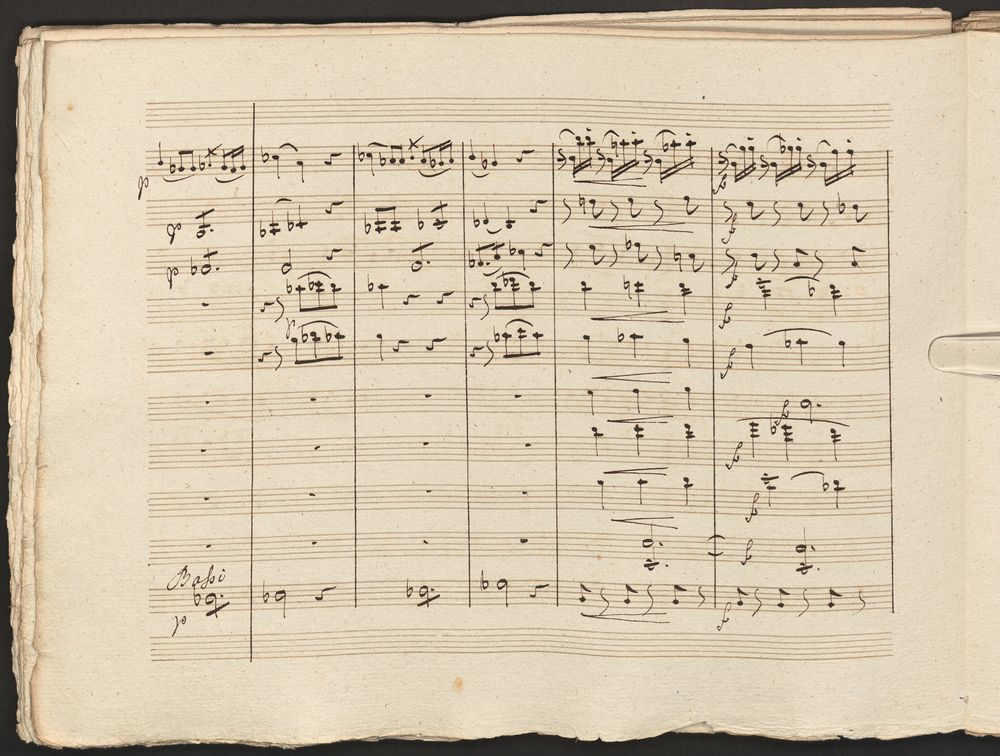 p
p
p
f
f
f
f
f
f
f
f
f
Bassi
p
f